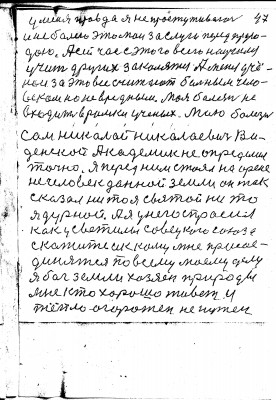 47
у меня правда я не простуживаюсь
и не болею это моя заслуга перед приро-
дою, Я ей час с этого всего научился
учит других закаляться А меня учё-
ные за это все считают больным чело-
веком но не вредным. Моя болезнь не
входит в рамки ученых. Мою болезнь
сам Николай Николаевич Ви-
денской Академик не определил
точно. Я перед ним стоял на арене
не человек данной земли он так
сказал не то я святой не то
я дурной. А я у него спросил
как у светилы советского союза
скажите к кому мне присое-
диняться по всему моему делу
я бог земли хозяин природы
мне кто хорошо живет и
тепло огорожен не нужен